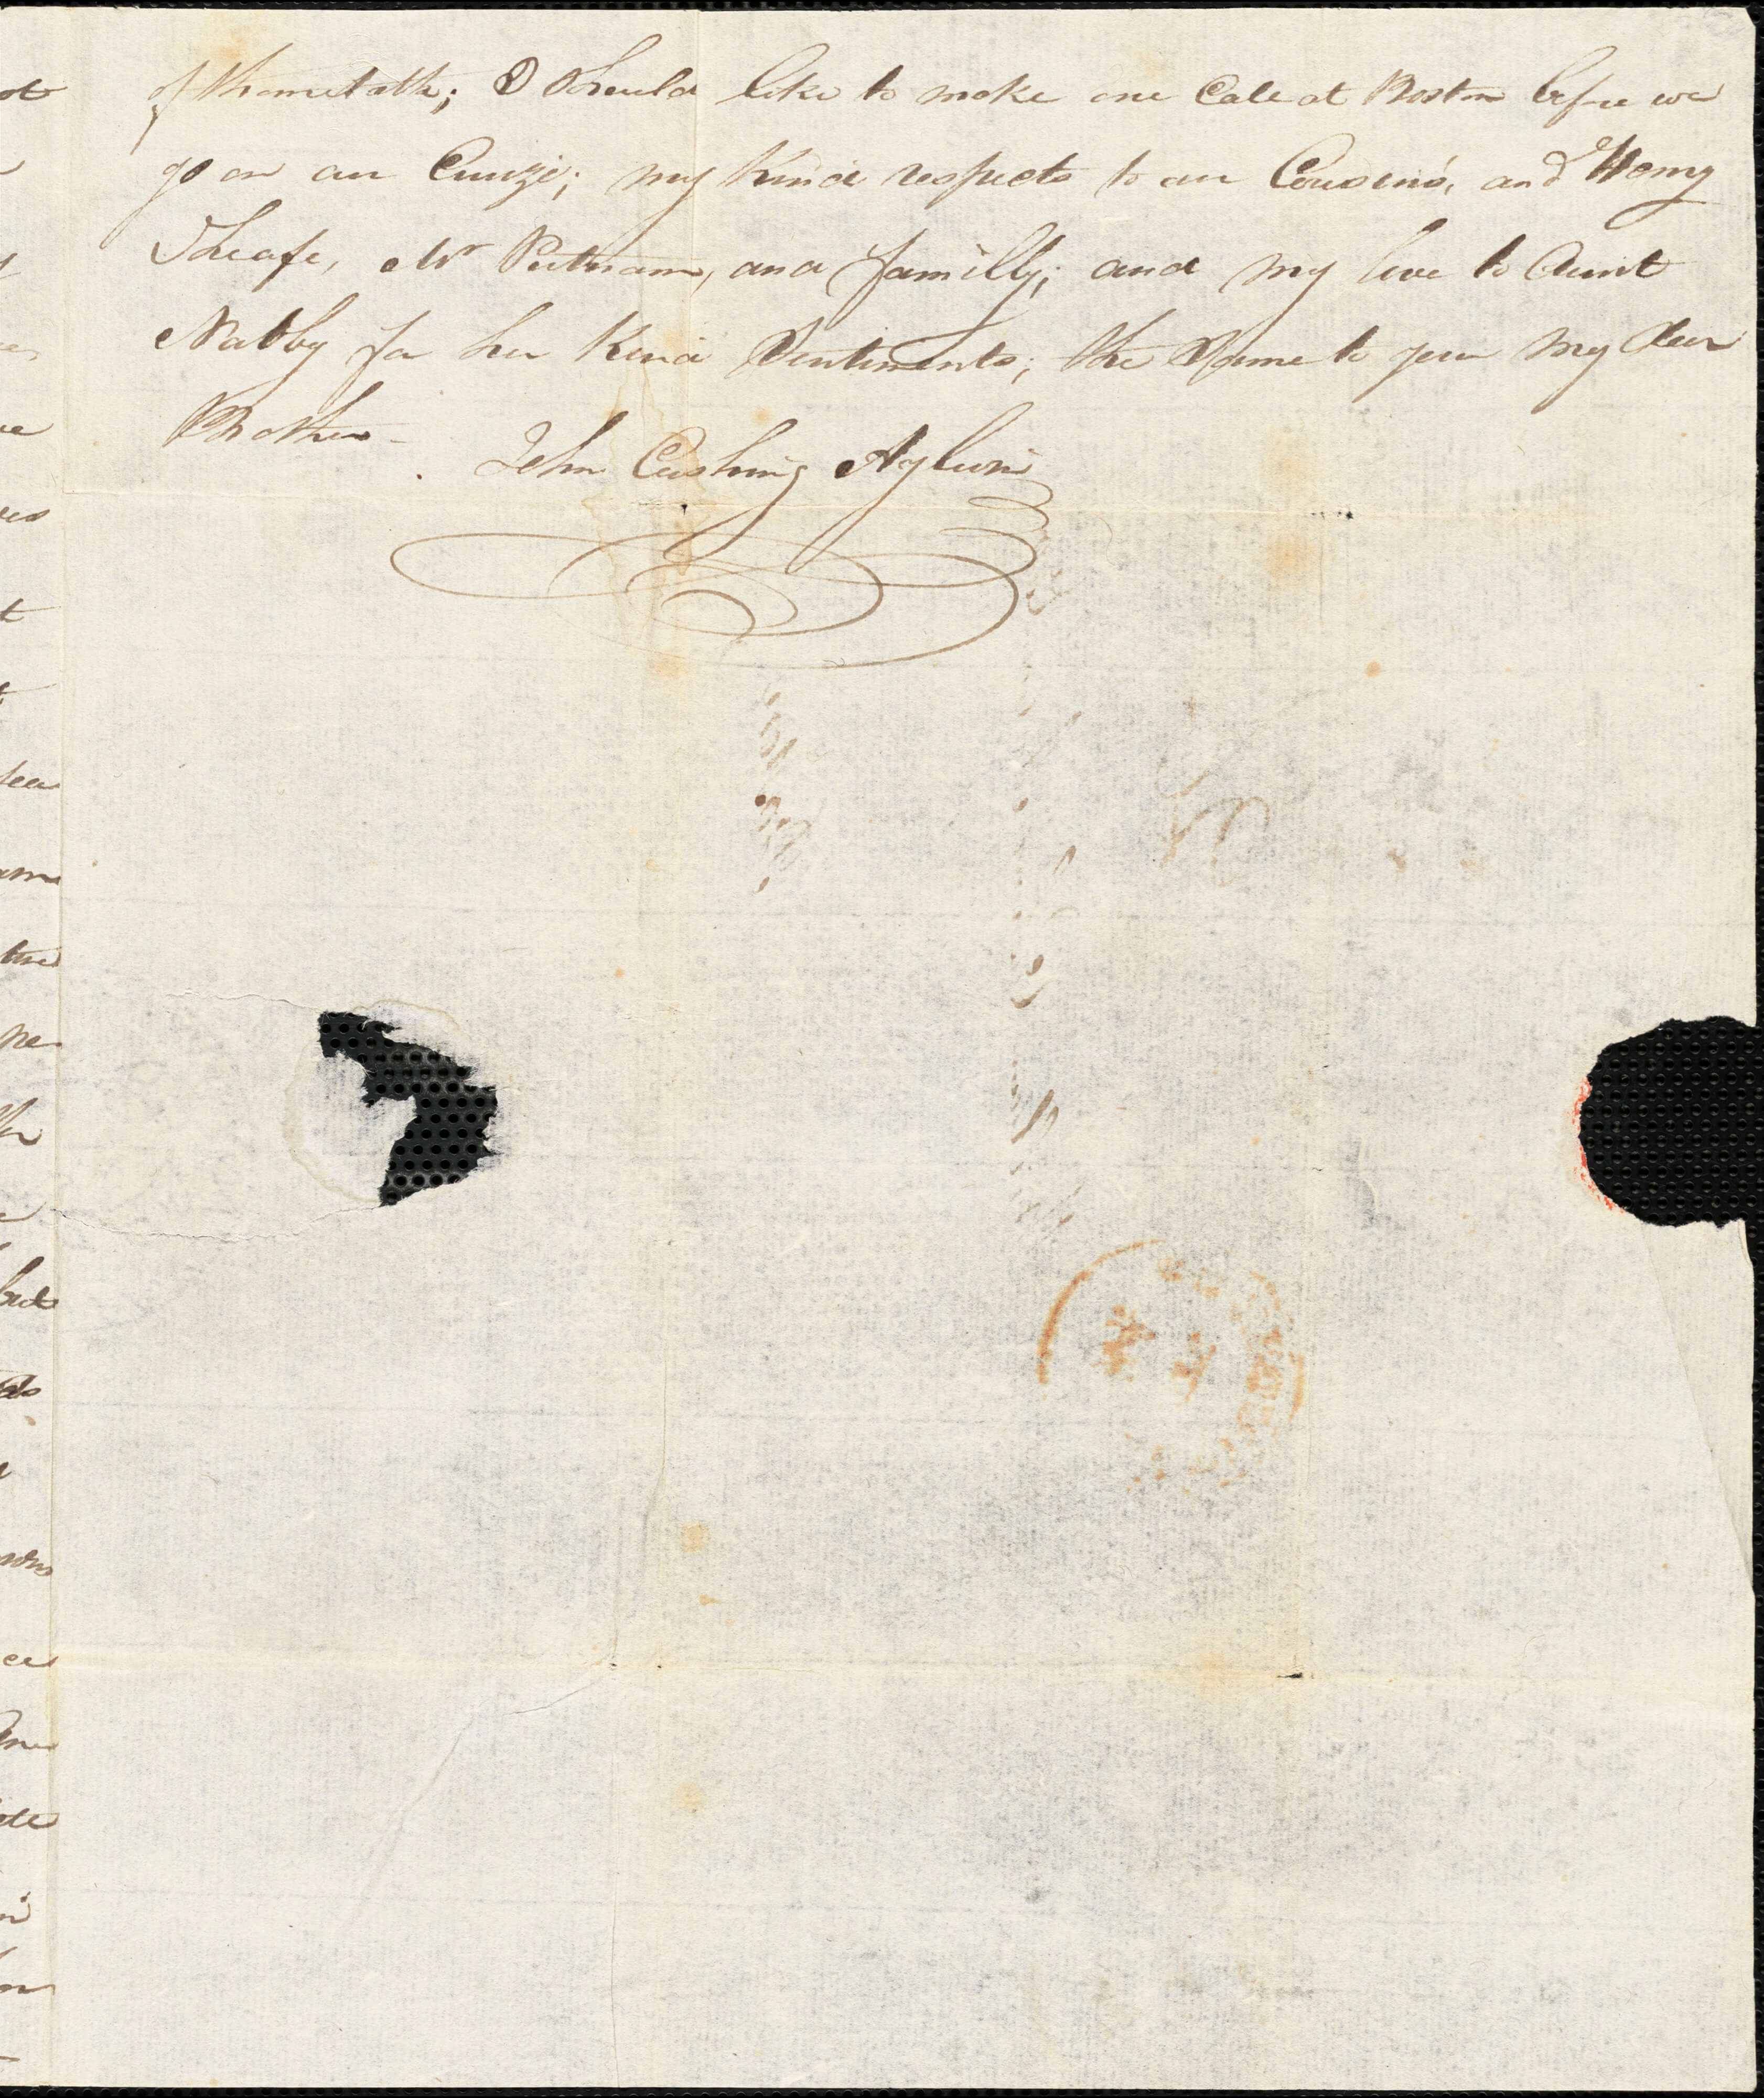 I should like to make one Call at Boston before we
go on our Cruize; my Kind respects to our Cousins, and Henry
Sheafe, Mr Putnam, and familly; and my love to Aunt
Nabby for her Kind Sentiments; the Same to you my dear
Brother -
John Cushing Aylwin